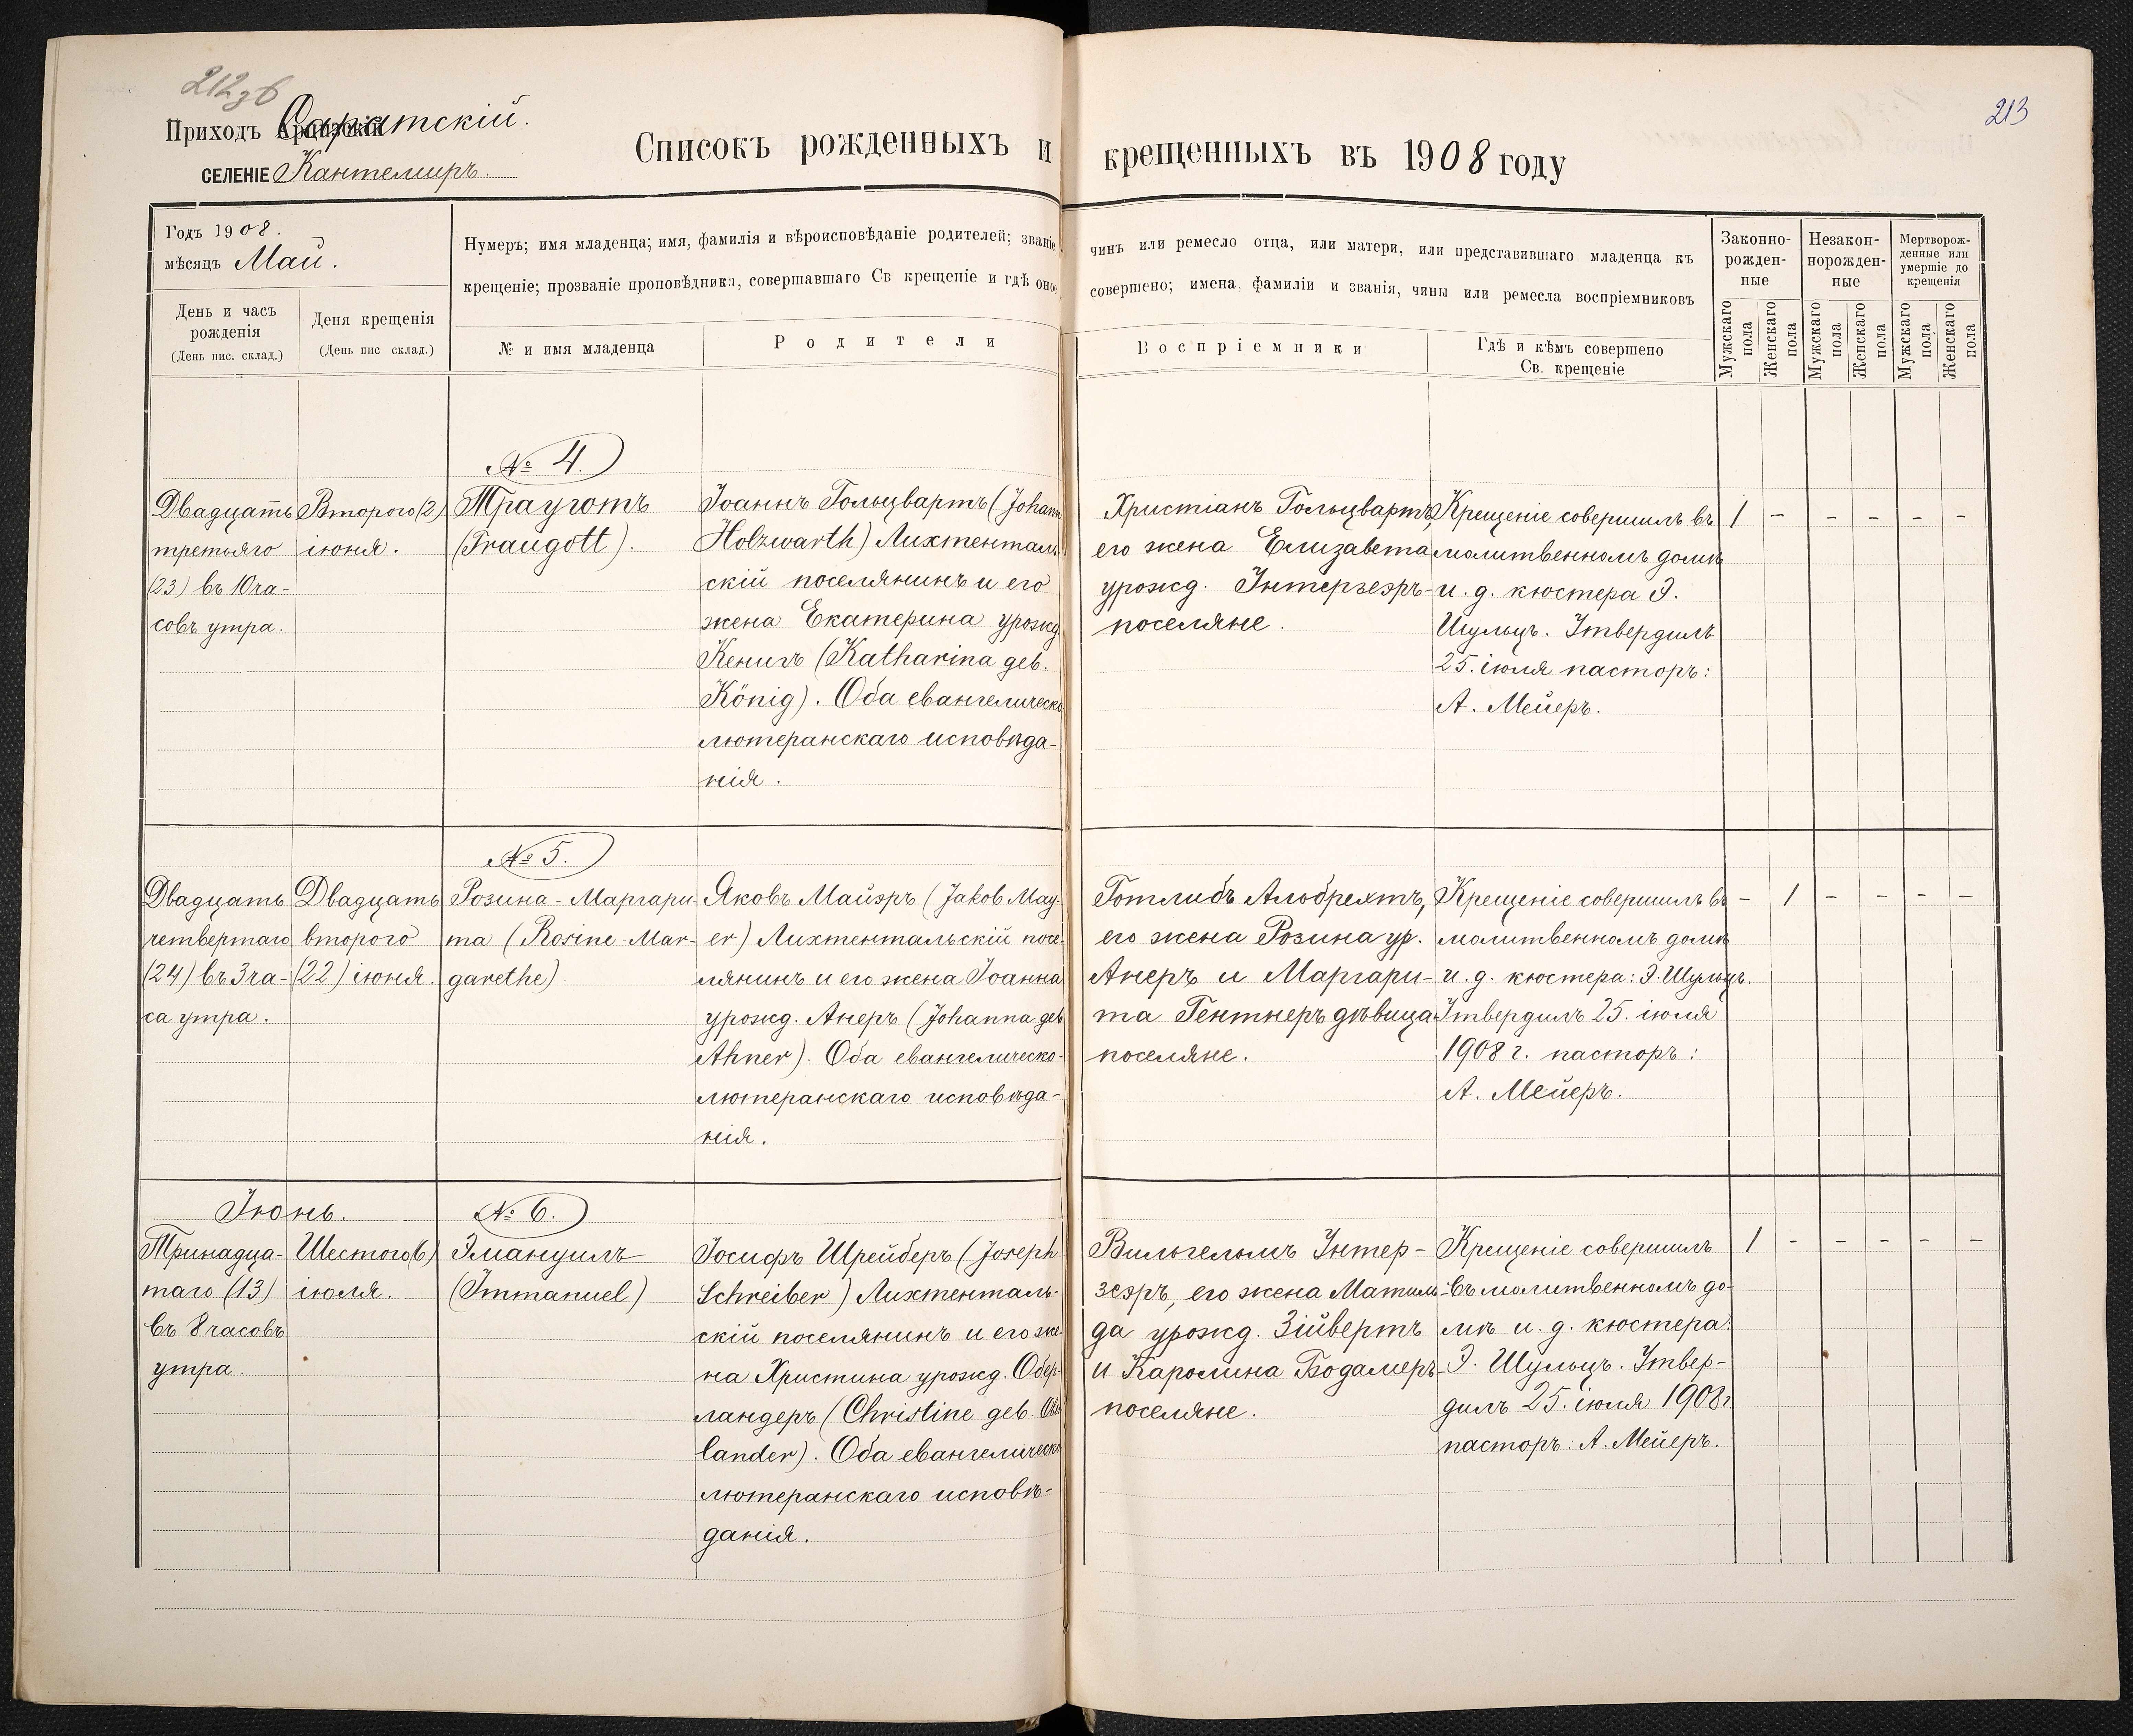 212 зв
213
Приходъ Саратскій.
селеніе Кантемиръ.
Списокъ рожденныхъ и крещенныхъ въ 1908 году
Годъ 1908.
мѣсяцъ Май.
День и часъ
рожденія
(День пис. склад.)
Деня крещенія
(День пис склад.)
Нумеръ; имя младенца; имя, фамилія и вѣроисповѣданіе родителей; званіе, чинъ или ремесло отца, или матери, или представившаго младенца къ
крещеніе; прозваніе проповѣдника, совершавшаго Св крещеніе и гдѣ оное совершено; имена, фамиліи и званія, чины или ремесла воспріемниковъ
№ и имя младенца
Родители
Воспріемники
Гдѣ и кѣмъ совершено
Св. крещеніе
Законно-
рожден-
ные
Незакон-
норожден-
ные
Мертворож-
денные или
умершіе до
крещенія
Мужскаго
пола
Женскаго
пола
Мужскаго
пола
Женскаго
пола
Мужскаго
пола
Женскаго
пола
№ 4.
Двадцать
третьяго
(23) въ 10 ча-
совъ утра.
Второго (2)
іюня.
Трауготъ
(Traugott).
Іоаннъ Гольцвартъ (Johann
Holzwarth) Лихтенталь
скій поселянинъ и его
жена Екатерина урожд.
Кенигъ (Katharina geb.
König). Оба евангелическо
лютеранскаго исповѣда-
нія.
Христіанъ Гольцвартъ
его жена Елизавета
урожд. Унтерзеэръ-
поселяне.
Крещеніе совершилъ въ
молитвенномъ домѣ
и. д. кюстера Э.
Шульцъ. Утвердилъ
25. іюля пасторъ:
А. Мейеръ.
1 - - - - -
№ 5.
Двадцать
четвертаго
(24) въ 3 ча-
са утра.
Двадцать
второго
(22) іюня.
Розина-Маргари-
та (Rosine-Mar-
garethe).
Яковъ Майэръ (Jakob May-
er) Лихтентальскій посе-
лянинъ и его жена Іоанна
урожд. Анеръ (Johanna geb
Ahner). Оба евангелическо-
лютеранскаго исповѣда-
нія.
Готлибъ Альбрехтъ,
его жена Розина ур.
Анеръ и Маргари-
та Гентнеръ дѣвица
поселяне.
Крещеніе совершилъ въ
молитвенномъ домѣ
и. д. кюстера: Э. Шульцъ.
Утвердилъ 25. іюля
1908 г. пасторъ:
А. Мейеръ.
- 1 - - - -
Іюнь.
№ 6.
Тринадца-
таго (13)
въ 8 часовъ
утра.
Шестого (6)
іюля.
Эмануилъ
(Immanuel)
Іосифъ Шрейберъ (Joseph
Schreiber) Лихтенталь-
скій поселянинъ и его же-
на Христина урожд. Обер-
ландеръ (Christine geb. Ober
lander). Оба евангелическо
лютеранскаго исповѣ-
данія.
Вильгельмъ Унтер-
зеэръ, его жена Матиль-
да урожд. Зійвертъ
и Каролина Бодамеръ-
поселяне.
Крещеніе совершилъ
въ молитвенномъ до-
мѣ и. д. кюстера:
Э. Шульцъ. Утвер-
дилъ 25. іюля 1908 г
пасторъ: А. Мейеръ.
1 - - - - -